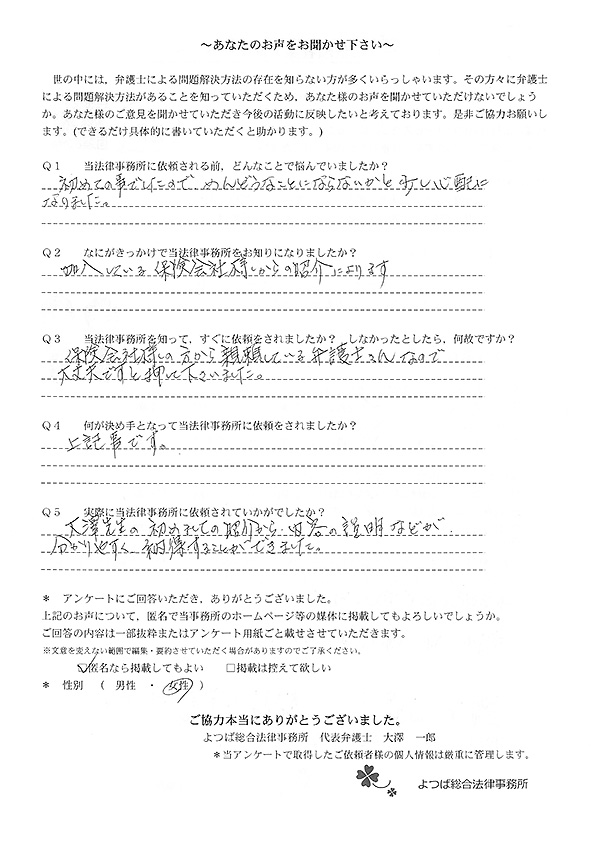 ～あなたのお声をお聞かせ下さい～
世の中には、弁護士による問題解決方法の存在を知らない方が多くいらっしゃいます。その方々に弁護士
による問題解決方法があることを知っていただくため，あなた様のお声を聞かせていただけないでしょう
か。あなた様のご意見を聞かせていただき今後の活動に反映したいと考えております。是非ご協力お願いし
ます。(できるだけ具体的に書いていただくと助かります。)
Q１　当法律事務所に依頼される前，どんなことで悩んでいましたか？
初めての事でしたので めんどうなことにならないかと 少し心配に
なりました。
Q２　なにがきっかけで当法律事務所をお知りになりましたか？
加入している 保険会社様からの紹介によります
Q３　当法律事務所を知って，すぐに依頼をされましたか？　しなかったとしたら，何故ですか？
保険会社様の方から 親頼している弁護士さんなので
大丈夫ですと押して下さいました。
Q４　何が決め手となって当法律事務所に依頼をされましたか？
上記事です。
Q５　実際に当法律事務所に依頼されていかがでしたか？
大澤先生の 初めましての紹介から 内容の説明などが
分かりやすく 納得することができました。
＊　アンケートにご回答いただき，ありがとうございました。
上記のお声について，匿名で当事務所のホームページ等の媒体に掲載してもよろしいでしょうか。
ご回答の内容は一部抜粋またはアンケート用紙ごと載せさせていただきます。
※文意を変えない範囲で編集・要約させていただく場合がありますのでご了承ください。
☑匿名なら掲載してもよい　　□掲載は控えて欲しい
＊　性別　（　男性　・　女性　）
ご協力本当にありがとうございました。
よつば総合法律事務所　代表弁護士　大澤　一郎
＊当アンケートで取得したご依頼者様の個人情報は厳重に管理します。
よつば総合法律事務所